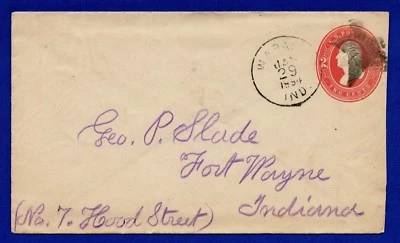 WABASH
JAN
29
1884
IND.
2
TWO CENTS
Geo. P. Slade
Fort Wayne
Indiana
(No. 7. Hood Street)